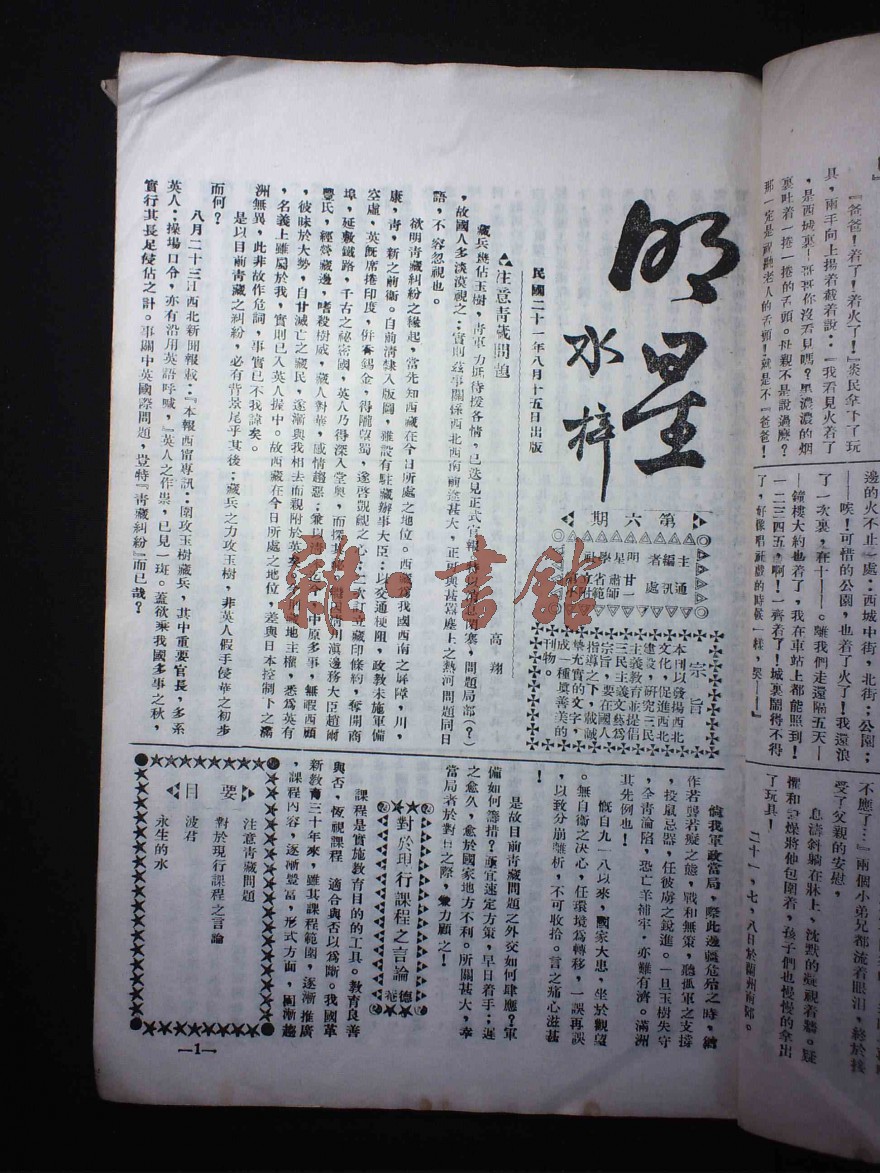 明星
水梓
第六期
主編者
明星學社
通訊處
甘肅省立
第一師範附小
宗旨
本刊以發揚西北
文化，促進西北
建設，研究三民
主義教育並提倡
三民主義文藝爲
宗旨，要在國人
指導之下，
摯充實的文字，
成一種眞善美的
刊物。
民國二十一年八月十五日出版
注意青藏問題
高翔
藏兵
，故國人多淡漠視之；實則茲事關係西北西南前途甚大，正
語，不容忽視也。
欲明青藏糾紛之緣起，當先知西藏在今日所處之地位。西藏爲我國西南之屏障，川，
康，青，新之前衛。自前清隸入版圖，雖設有駐藏辦事大臣；以交通梗阻，政教未施軍備
空虛，英旣席捲印度，併吞錫金，得隴望蜀，遂啓覬覦之心
埠，延敷鐵路，千古之秘密國，英人乃得深入堂奧，而探其
豐氏，經營藏邊，嗜殺樹威，藏人對華，感情趨惡；兼以
，彼昧於大勢，自甘滅亡之藏民，遂漸與我相去而親附於英矣
，名義上雖屬於我，實則已入英人握中。故西藏在今日所處之地位，差與日本控制下之滿
洲無異，此非故作危詞，事實已不我諱矣。
是以目前青藏之糾紛，必有背景尾乎其後；藏兵之力攻玉樹，非英人假手侵華之初步
而何？
八月二十三江西北新聞報載：『本報西甯專訊：圍攻玉樹藏兵，其中重要官長，多系
英人；操場口令，亦有沿用英語呼喊，』英人之作祟，已見一斑。蓋欲乘我國多事之秋，
實行其長足侵佔之計。事關中英國際問題，豈特『青藏糾紛』而已哉？
倘我軍政當局，際此邊疆危殆之時，猶
作若聾若癡之態，戰和無策，聽孤軍之支撐
，投鼠忌器，任彼虜之銳進。一旦玉樹失守
，全青淪陷，恐亡羊捕牢，亦難有濟。滿洲
其先例也！
慨自九一八以來，國家大患，坐於觀望
。無自衛之決心，任環境爲轉移，一誤再誤
，以致分崩離析，不可收拾。言之痛心滋甚
！
是故目前青藏問題之外交如何肆應？軍
備如何籌措？亟宜速定方策，早日着手；遲
之愈久，愈於國家地方不利。所關甚大，幸
當局者於對日之際，兼力顧之！
對於現行課程之言論
德卷
課程是實施教育目的的工具。教育良善
與否，恆視課程　適合與否以爲斷。我國革
新教育三十年來，雖其課程範圍，逐漸推廣
，課程內容，逐漸豐富，形式方面，固漸趨
要目
注意青藏問題
對於現行課程之言論
波君
永生的水
—1—
『爸爸！着了！着火了！』炎民傘下了玩
具，兩手向上揚着截着說：『我看見火着了
，是西城裏
裏吐着一捲一捲的舌頭。母親不是說過麽？
那一定是
邊的火不止一處；西城中街，北街；公園；
——唉！可惜的公園，也着了火了！我這浪
了一次裏，在十——。離我們走還隔五天—
—鐘樓大約也着了，我在車站上都能照到！
一二三四五，啊！一齊着了！城裏鬧得不得
了，好像唱社戲的時候一樣，哭——』
不應了…』兩個小弟兄都流着眼泪，終於接
受了父親的安慰，
息濤斜躺在牀上，沈默的凝視着牆。疑
懼和　燥將他包圍着，孩子們也慢慢的拿出
了玩具！
二十一，七，八日於蘭州南郊。
雜書館